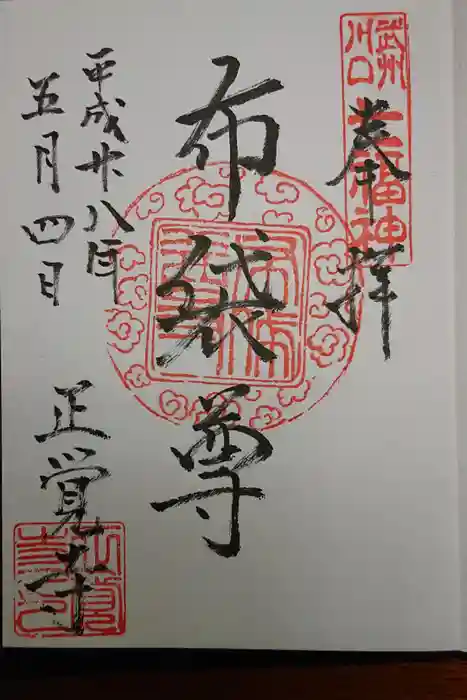 武州
川口
七福神
奉拝
布袋尊
平成廿八年
五月四日
正覚寺